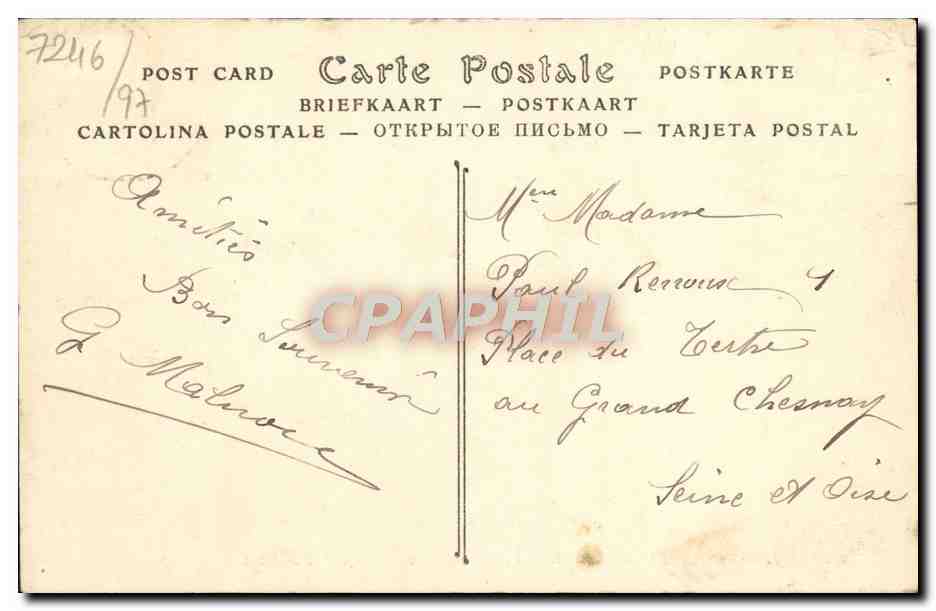 7246/97
POST CARD Carte Postale POSTKARTE
BRIEFKAART — POSTKAART
CARTOLINA POSTALE — ОТКРЫТОЕ ПИСЬМО — TARJETA POSTAL
Amitiés
Bon Souvenir
G Malnoue
Madame
Paul Renoux
Place du Tertre
au Grand Chesnay
Seine et Oise
CPAPHIL